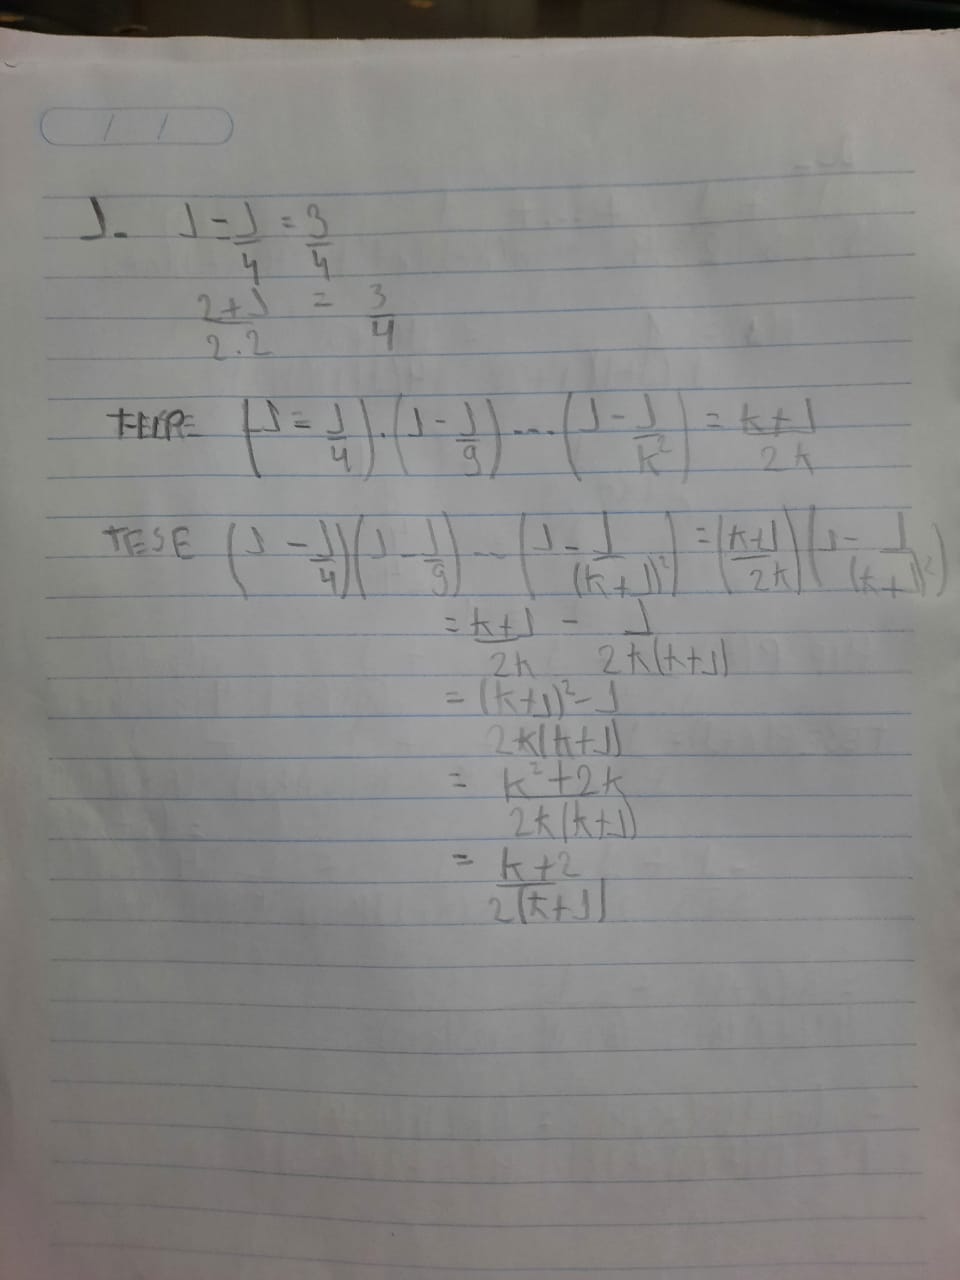 1. 1 - 1/4 = 3/4
(2+1)/(2.2) = 3/4
(1 = 1/4).(1 - 1/9)...(1 - 1/k²) = (k+1)/(2k)
TESE (1 - 1/4)(1 - 1/9)...(1 - 1/(k+1)²) = ((k+1)/(2k))(1 - 1/(k+1)²)
= (k+1)/(2k) - 1/(2k(k+1))
= ((k+1)² - 1)/(2k(k+1))
= (k²+2k)/(2k(k+1))
= (k+2)/(2(k+1))